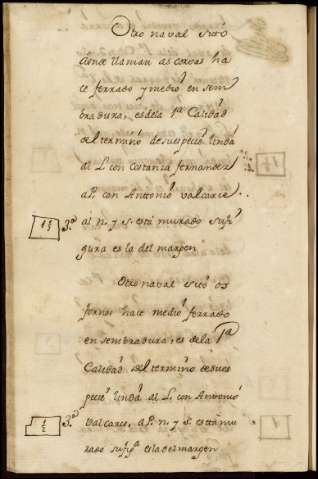 Otro naval sitto
donde llaman as coroas ha
ce ferrado y medio en sem
bradura, es dela 1ª Calidad
del termino de su especie linda
al L. con Costanza fernandez
a P. con Antonio valcarce
1½ 3º al n. y s. está murado su fi
gura es la del margen
Otro naval sitto os
fornos hace medio ferrado
en sembradura, es de la 1ª
Calidad del termino de su es
pecie linda al L. con Antonio
½ 3º Valcarce, a P. n. y s. está mu
rado su figª es la del margen